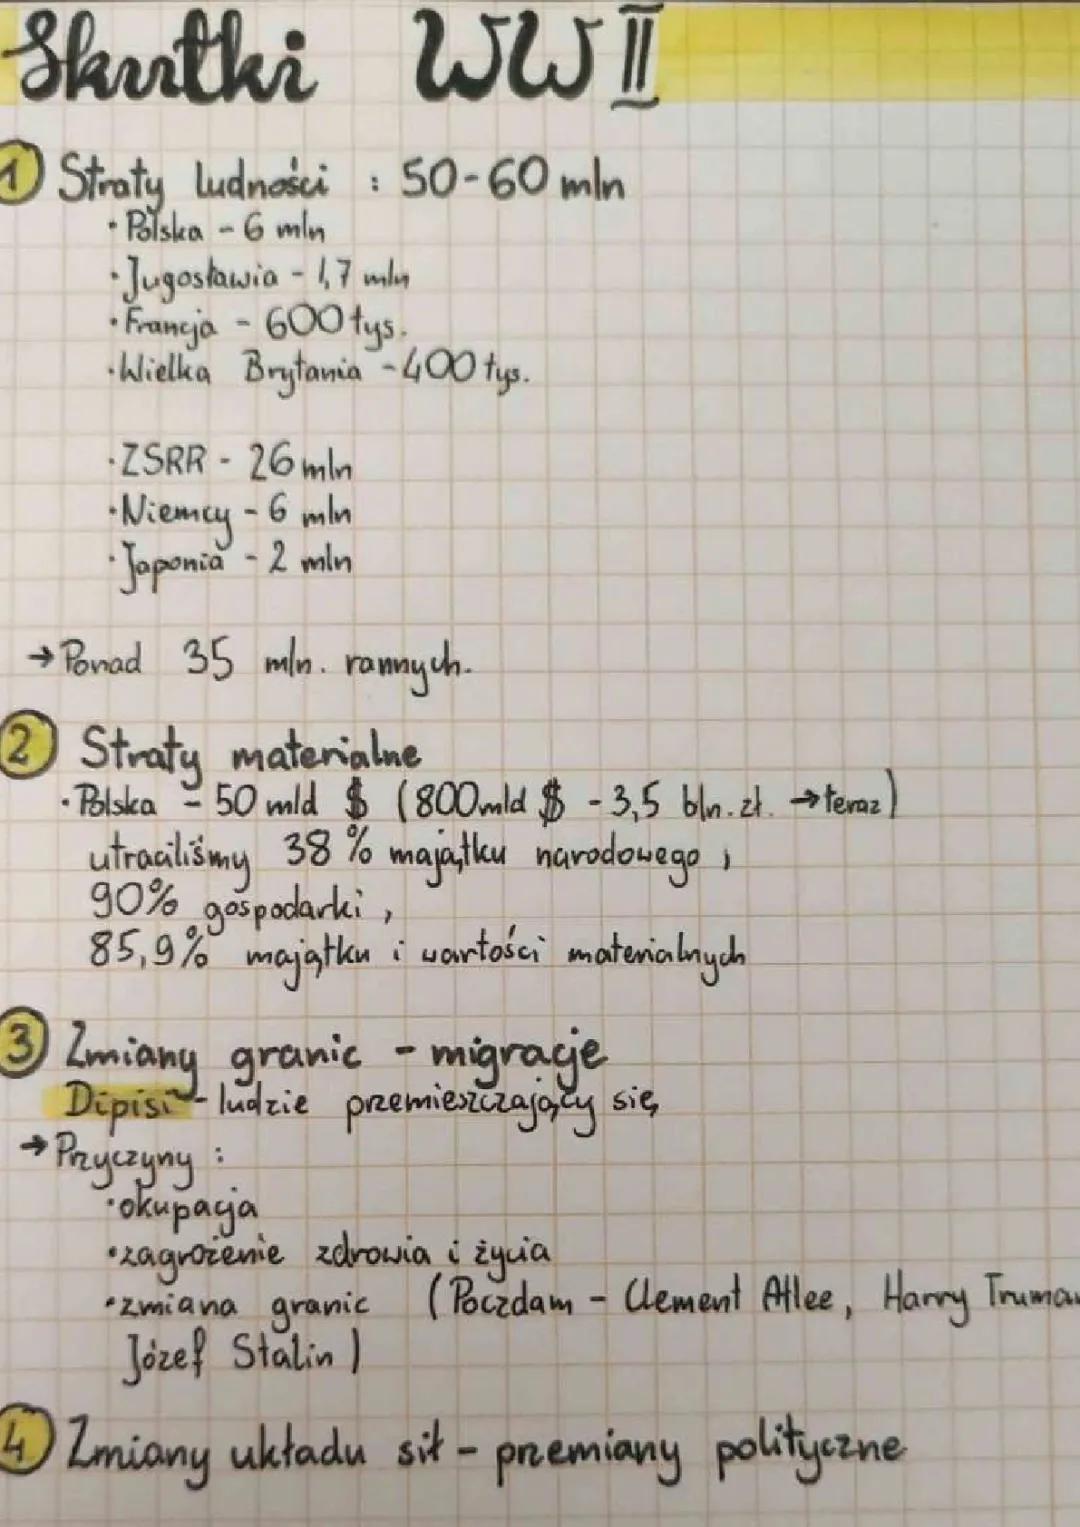 Skutki WW II
1 Straty ludności : 50-60 mln
• Polska - 6 mln
• Jugosławia - 1,7 mln
• Francja - 600 tys.
• Wielka Brytania - 400 tys.
• ZSRR - 26 mln
• Niemcy - 6 mln
• Japonia - 2 mln
→ Ponad 35 mln. rannych.
2 Straty materialne
• Polska - 50 mld $ (800 mld $ - 3,5 bln. zł. → teraz)
utraciliśmy 38 % majątku narodowego ,
90% gospodarki ,
85,9% majątku i wartości materialnych
3 Zmiany granic - migracje
Dipisi - ludzie przemieszczający się
→ Przyczyny :
• okupacja
• zagrożenie zdrowia i życia
• zmiana granic (Poczdam - Clement Atlee, Harry Truman
Józef Stalin)
4 Zmiany układu sił - przemiany polityczne